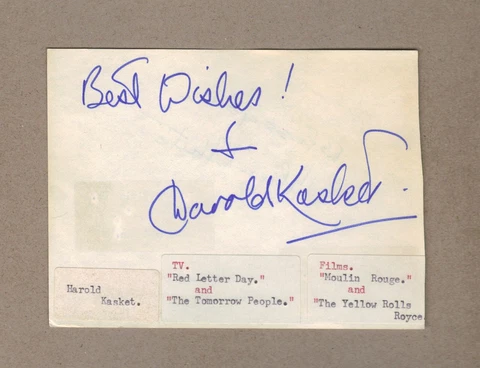 Best Wishes !
Harold Kasket.
Harold
Kasket.
TV.
"Red Letter Day."
and
"The Tomorrow People."
Films.
"Moulin Rouge."
and
"The Yellow Rolls
Royce